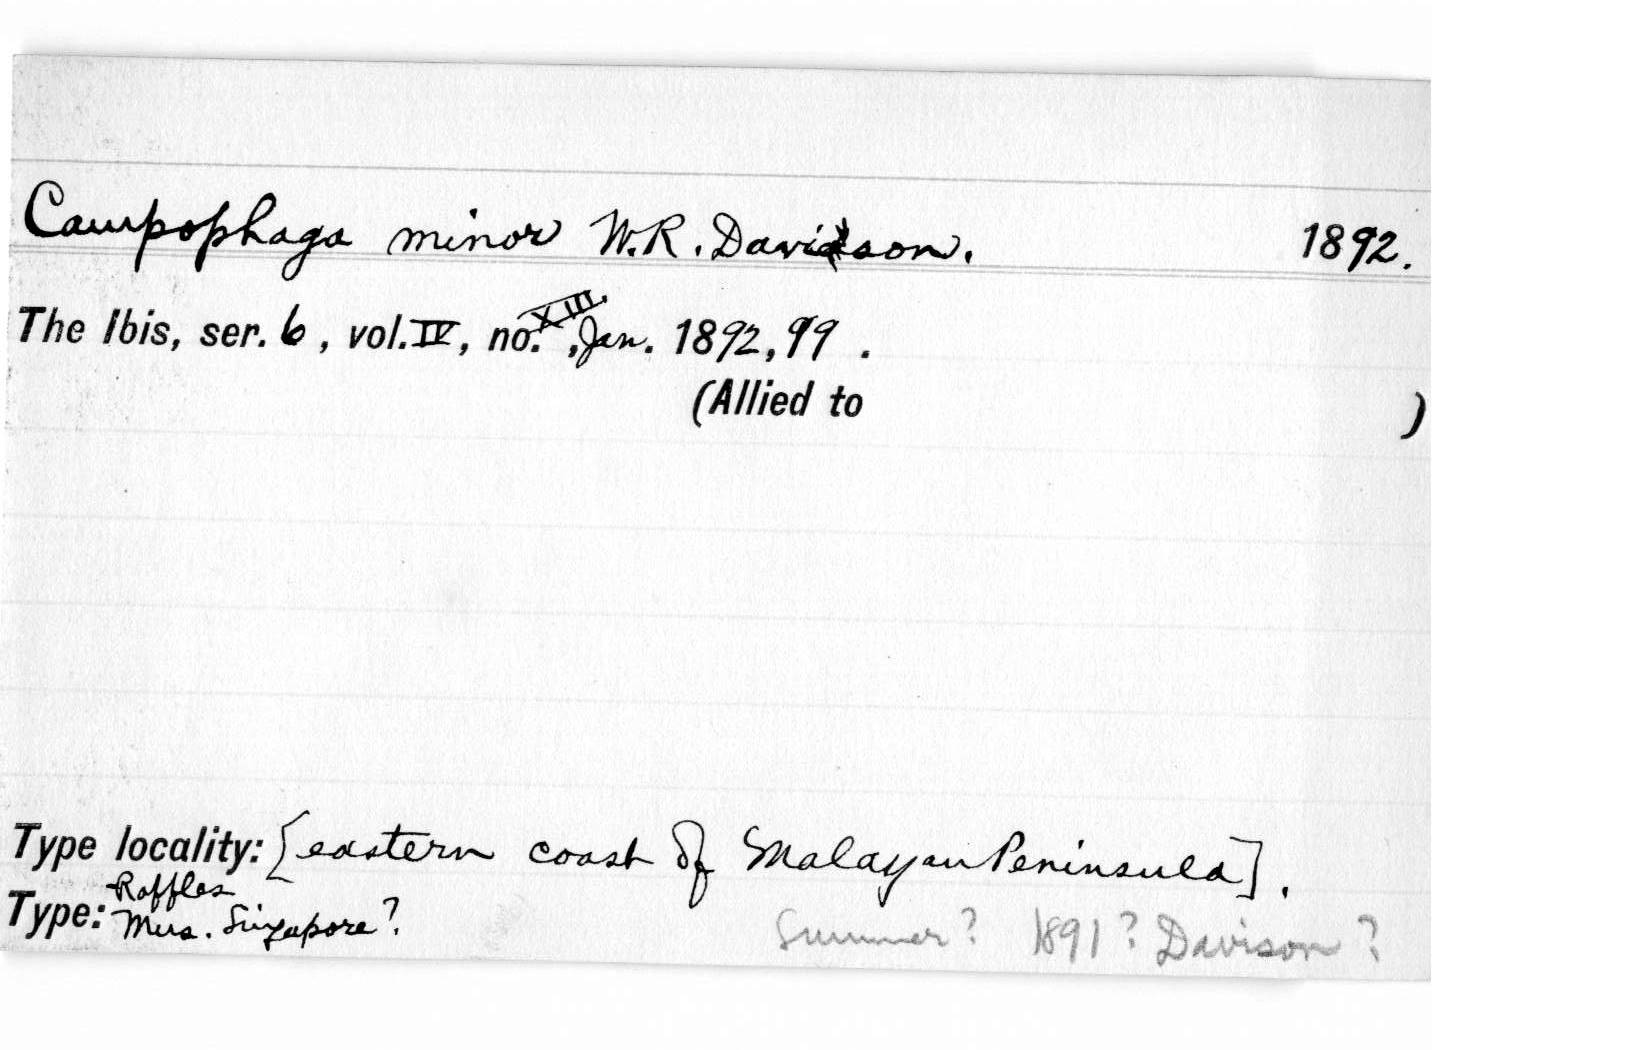 Campophaga minor W.R. Davison. 1892.
The Ibis, ser. 6, vol. IV, no. XIII, Jan. 1892, 99.
(Allied to )
Type locality: [eastern coast of Malayan Peninsula].
Type: Raffles Mus. Singapore?
Summer? 1891? Davison?